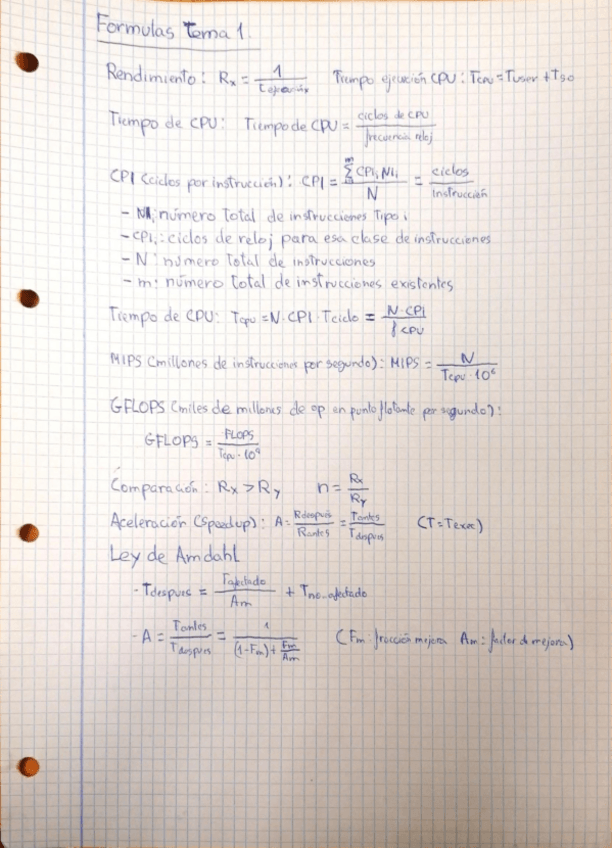 Formulas Tema 1.
Rendimiento: Rx = 1 / t ejecución x    Tiempo ejecución CPU: Tcpu = Tuser + Tso
Tiempo de CPU: Tiempo de CPU = ciclos de CPU / frecuencia reloj
CPI (ciclos por instrucción): CPI = Σ^m CPIi NIi / N = ciclos / instrucción
- NIi: número total de instrucciones tipo i
- CPIi: ciclos de reloj para esa clase de instrucciones
- N: número total de instrucciones
- m: número total de instrucciones existentes
Tiempo de CPU: Tcpu = N · CPI · Tciclo = N · CPI / f CPU
MIPS (millones de instrucciones por segundo): MIPS = N / Tcpu · 10^6
GFLOPS (miles de millones de op en punto flotante por segundo):
GFLOPS = FLOPS / Tcpu · 10^9
Comparación: Rx > Ry    n = Rx / Ry
Aceleración (speedup): A = Rdespués / Rantes = Tantes / Tdespues    (T = Texec)
Ley de Amdahl
- Tdespues = Tafectado / Am + Tno_afectado
- A = Tantes / Tdespues = 1 / ((1-Fm) + Fm / Am)    (Fm: fracción mejora Am: factor de mejora)